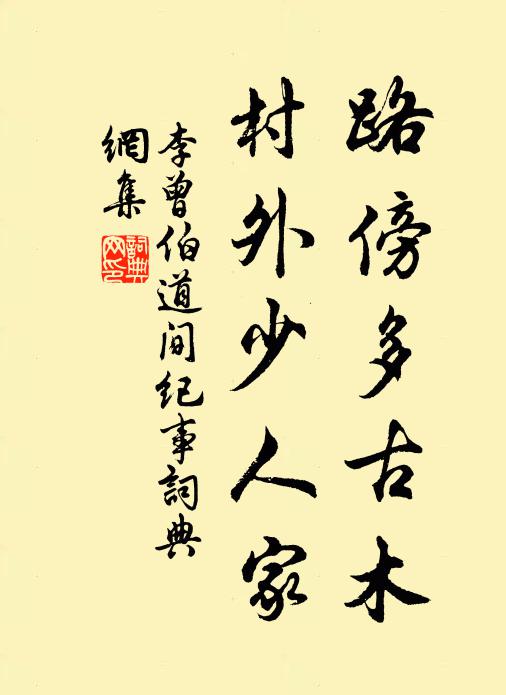 路傍多古木
村外少人家
李曾伯道間纪事詞典
網集
詞典
网印